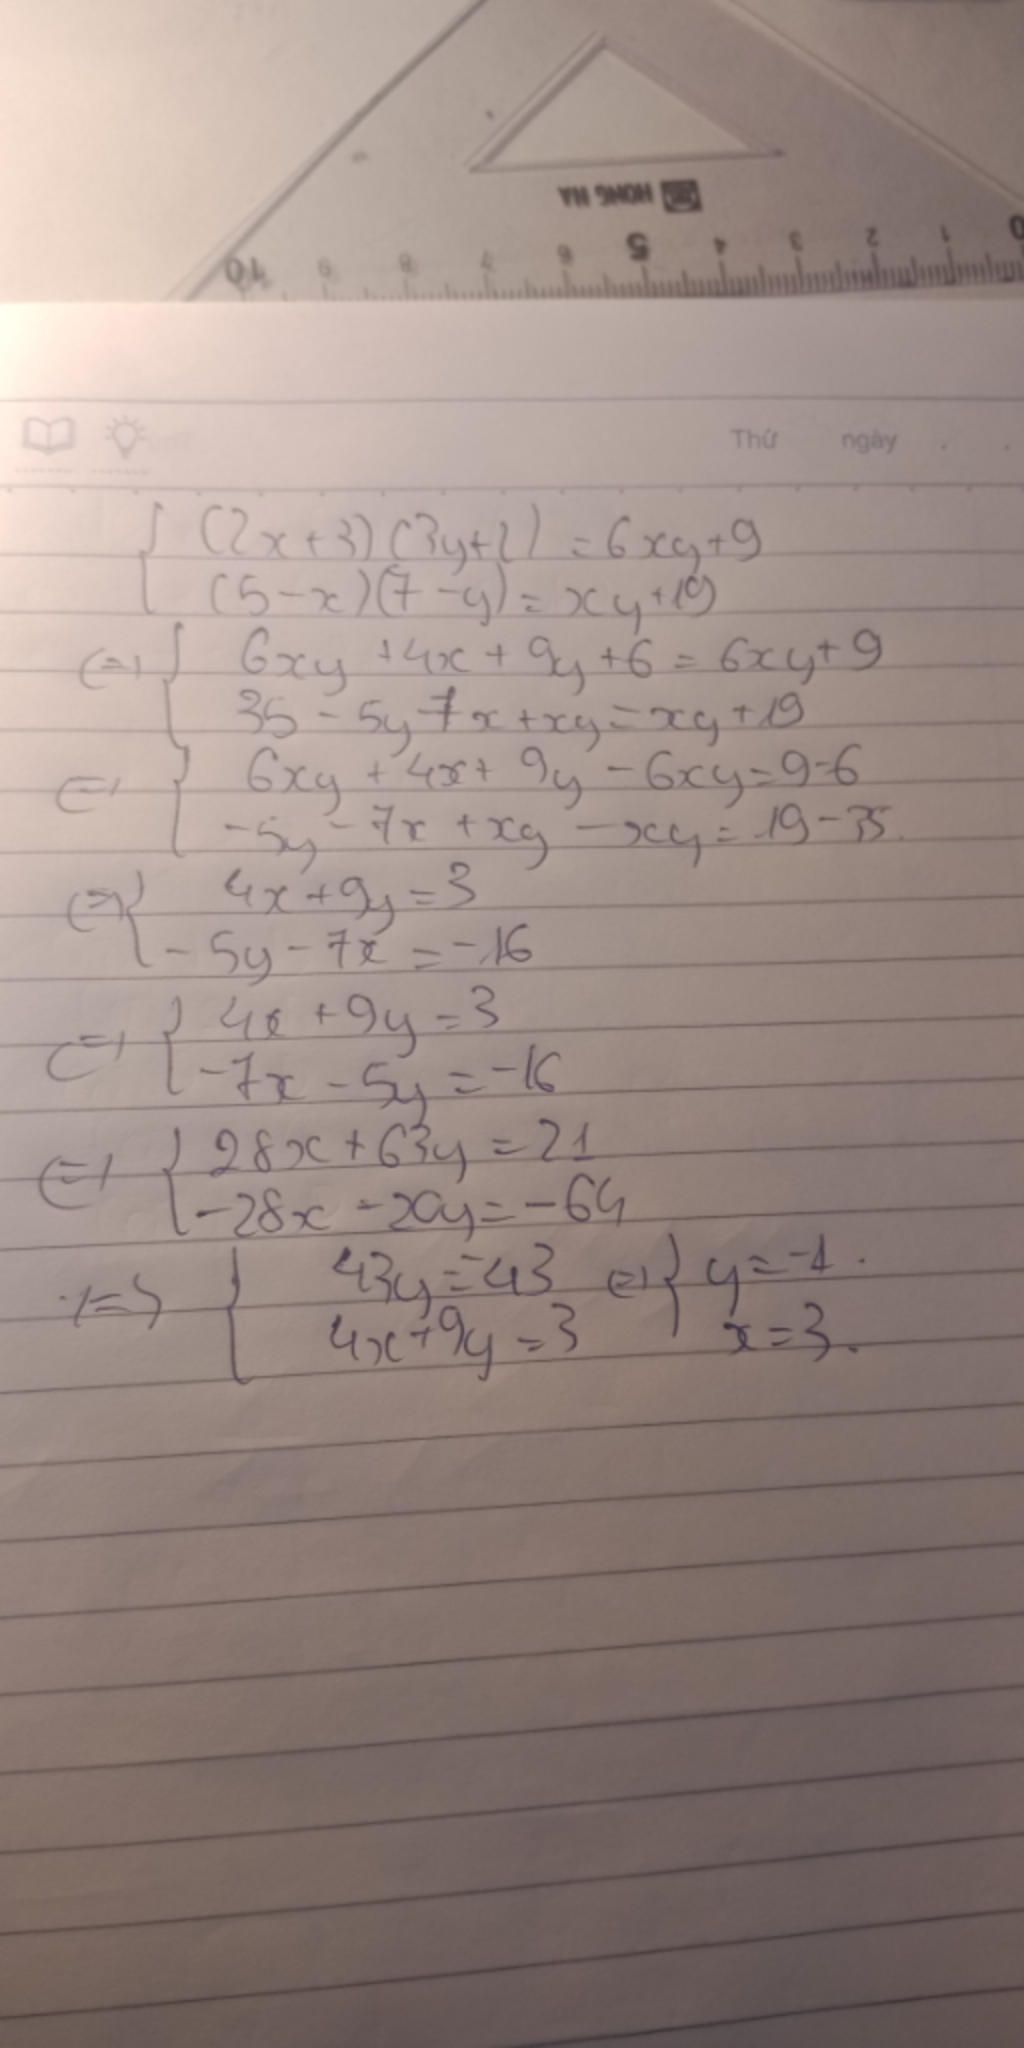 HONG HA
10 9 8 7 6 5 4 3 2 1 0
Thứ ngày
{ (2x+3)(3y+2) = 6xy+9
(5-x)(7-y) = xy+19
<=> { 6xy +4x + 9y +6 = 6xy+9
35 - 5y - 7x + xy = xy +19
<=> { 6xy + 4x + 9y - 6xy = 9-6
-5y - 7x + xy - xy = 19-35.
<=> { 4x+9y=3
-5y-7x = -16
<=> { 4x +9y=3
-7x -5y = -16
<=> { 28x+63y = 21
-28x -20y = -64
<=> { 43y = -43 <=> { y=-1.
4x+9y=3 x=3.